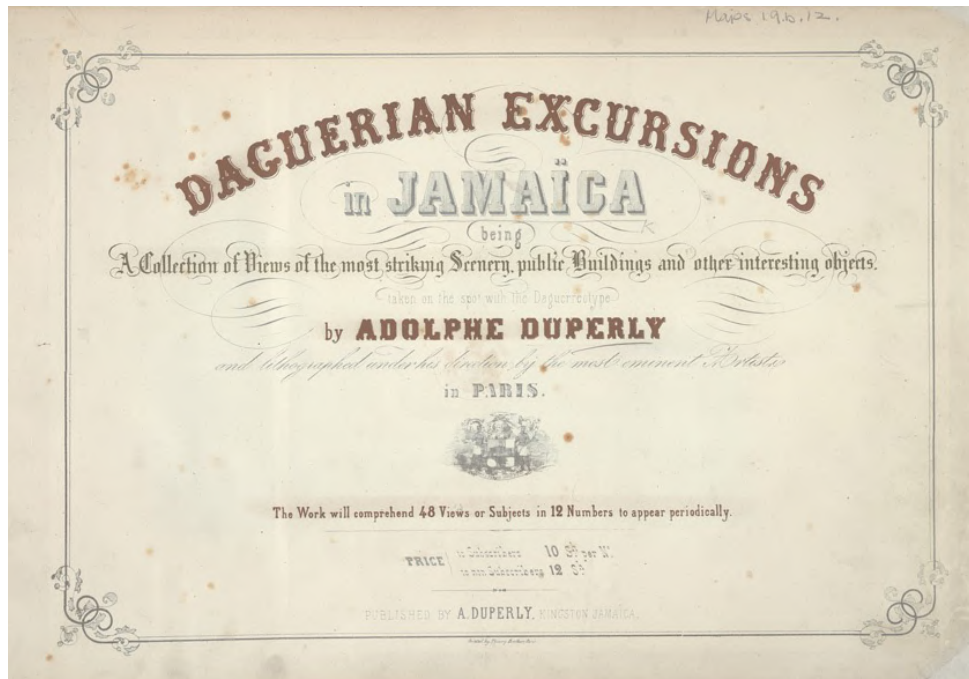 Maps 19.b.12.
DAGUERIAN EXCURSIONS
in JAMAÏCA
being
A Collection of Views of the most striking Scenery, public Buildings and other interesting objects,
taken on the spot with the Daguerreotype
by ADOLPHE DUPERLY
and lithographed under his direction by the most eminent Artists
in PARIS.
The Work will comprehend 48 Views or Subjects in 12 Numbers to appear periodically.
PRICE
to Subscribers 10 Sh per N.
to non Subscribers 12 Sh
PUBLISHED BY A. DUPERLY, KINGSTON JAMAÏCA,